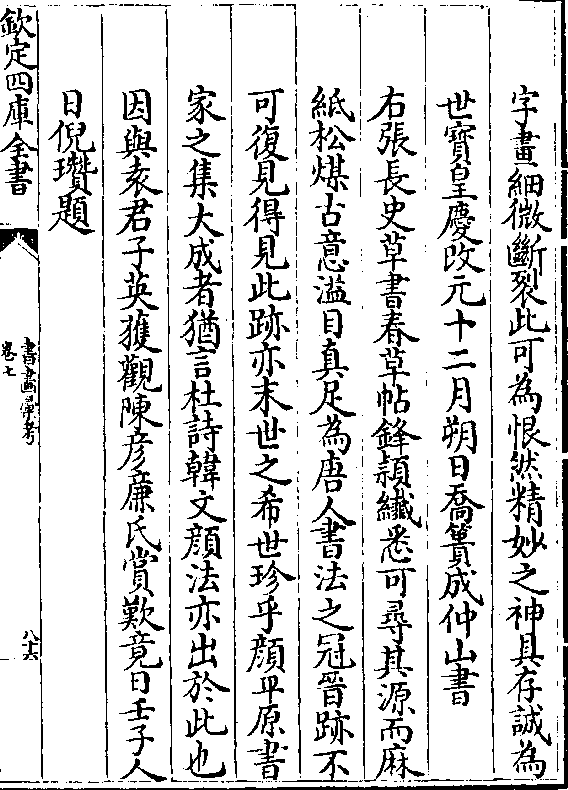 字畫細微斷裂此可為恨然精妙之神具存誠為
世寳皇慶改元十二月朔日喬簣成仲山書
右張長史草書春草帖鋒頴纖悉可尋其源而麻
紙松煤古意溢目真足為唐人書法之冠晉跡不
可復見得見此跡亦末世之希世珍乎顔平原書
家之集大成者猶言杜詩韓文顔法亦出於此也
因與袁君子英獲觀陳彦㢘氏賞歎竟日壬子人
日倪瓚題
欽定四庫全書
書畫彚考
卷七
八十六